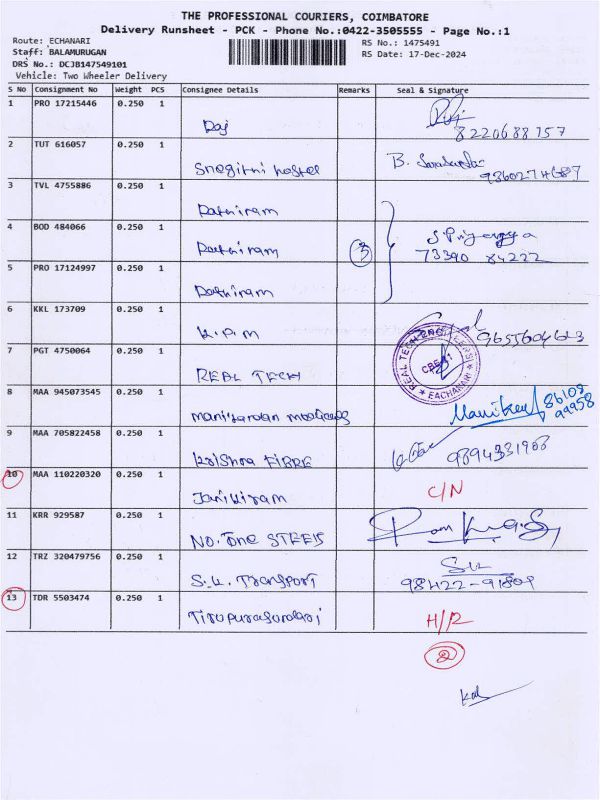 THE PROFESSIONAL COURIERS, COIMBATORE
Delivery Runsheet - PCK - Phone No.:0422-3505555 - Page No.:1
Route: ECHANARI
RS No.: 1475491
Staff: BALAMURUGAN
RS Date: 17-Dec-2024
DRS No.: DCJB147549101
Vehicle: Two Wheeler Delivery
S No Consignment No Weight PCS Consignee Details Remarks Seal & Signature
1 PRO 17215446 0.250 1
Raj 8220688757
2 TUT 616057 0.250 1
hostel
3 TVL 4755886 0.250 1
4 BOD 484066 0.250 1
3 73390 84222
5 PRO 17124997 0.250 1
6 KKL 173709 0.250 1
K.P.M
7 PGT 4750064 0.250 1
REAL TECH REAL TECH ENGINEERS EACHANARI
8 MAA 945073545 0.250 1
86108
99958
9 MAA 705822458 0.250 1
Krishna FIBRE 9894331908
10 MAA 110220320 0.250 1
Janikiram C/N
11 KRR 929587 0.250 1
NO. One STEELS
12 TRZ 320479756 0.250 1
S.K. Transport S.K
13 TDR 5503474 0.250 1
Tirupurasundari H/R
2